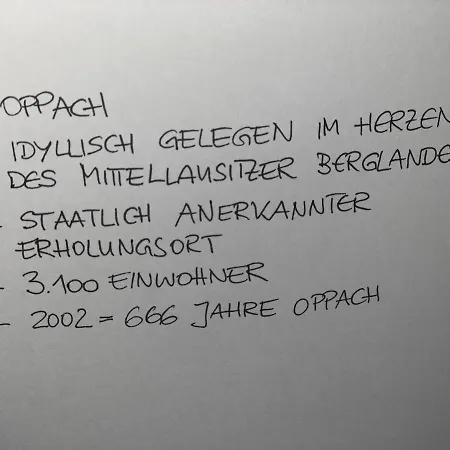 OPPACH
IDYLLISCH GELEGEN IM HERZEN
DES MITTELLAUSITZER BERGLANDE
- STAATLICH ANERKANNTER
ERHOLUNGSORT
- 3.100 EINWOHNER
- 2002 = 666 JAHRE OPPACH